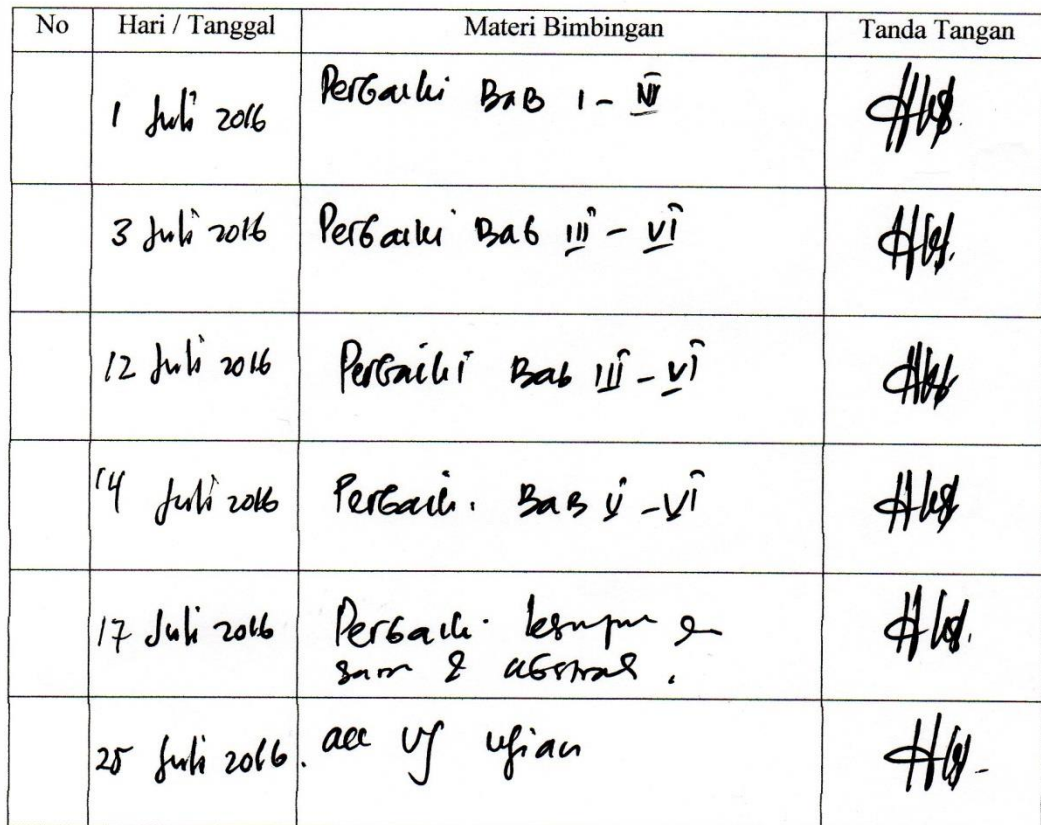 No Hari / Tanggal Materi Bimbingan Tanda Tangan
1 Juli 2016 Perbaiki BaB I - IV
3 Juli 2016 Perbaiki Bab III - VI
12 Juli 2016 Perbaiki Bab III - VI
14 Juli 2016 Perbaiki BaB V - VI
17 Juli 2016 Perbaiki
& abstrak.
25 Juli 2016. acc ujian